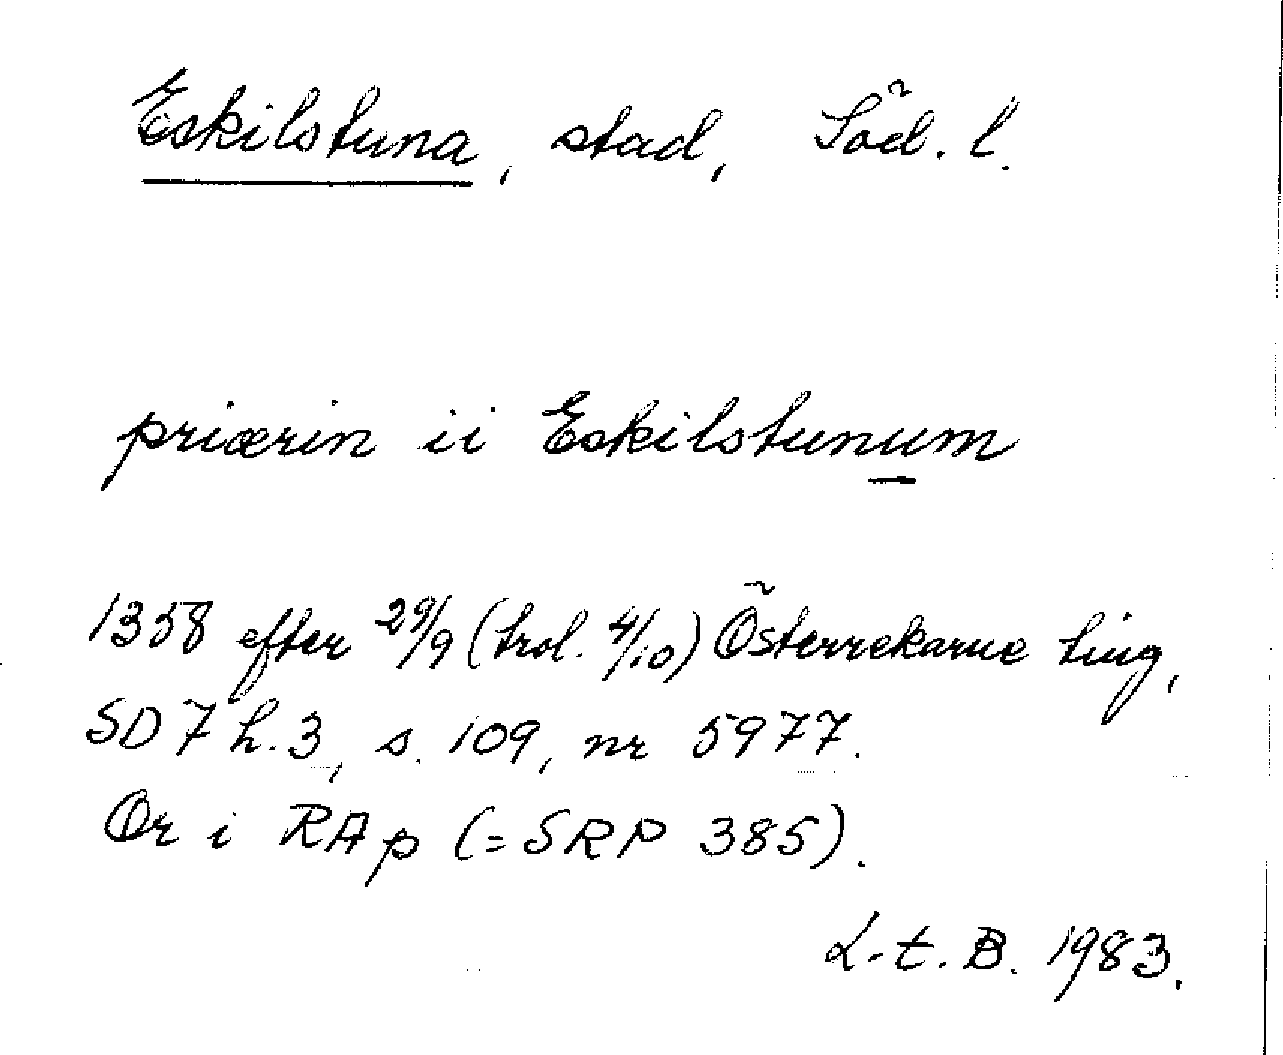 Eskilstuna, stad, Söd. l.
priærin ii Eskilstunum
1358 efter 29/9 (trol. 4/10) Österrekarne ting,
SD 7 h. 3, s. 109, nr 5977.
Or i RAp (= SRP 385).
L-t. B. 1983.